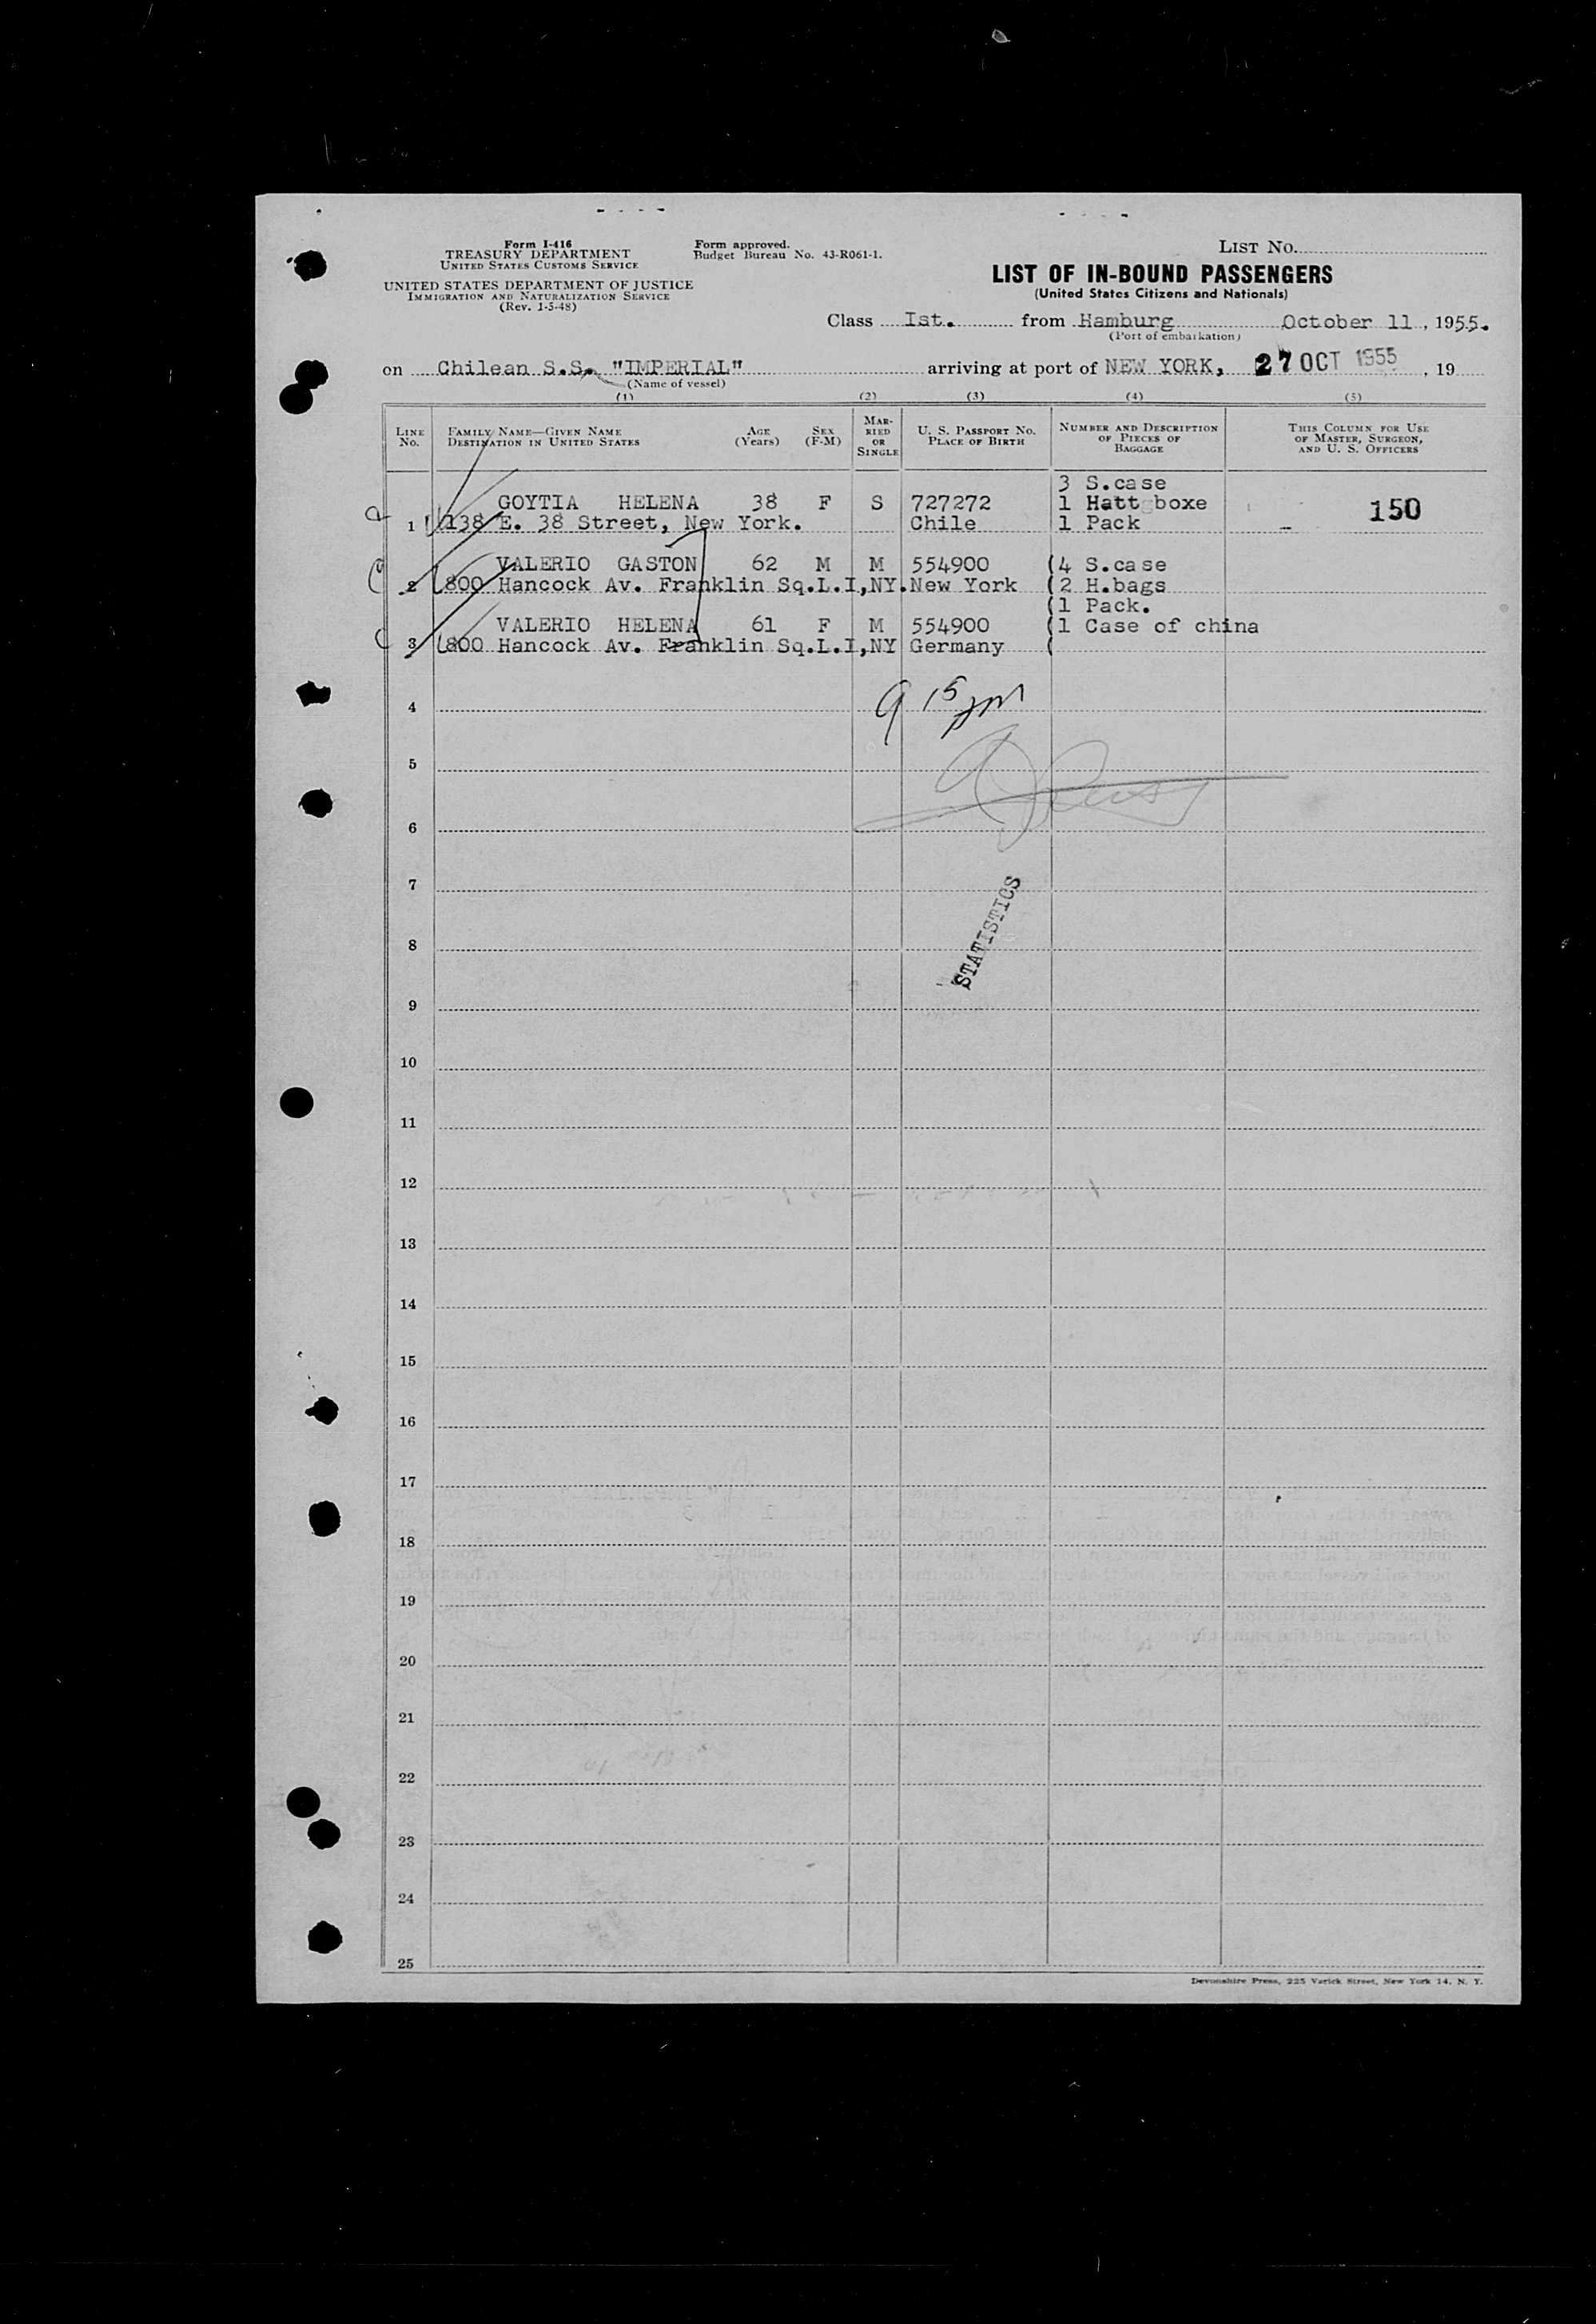 Form I-416
TREASURY DEPARTMENT
UNITED STATES CUSTOMS SERVICE
UNITED STATES DEPARTMENT OF JUSTICE
IMMIGRATION AND NATURALIZATION SERVICE
(Rev. 1-5-48)
Form approved.
Budget Bureau No. 43-R061-1.
LIST NO.
LIST OF IN-BOUND PASSENGERS
(United States Citizens and Nationals)
Class Ist. from Hamburg October 11, 1955.
(Port of embarkation)
on Chilean S.S. "IMPERIAL" arriving at port of NEW YORK, 27 OCT 1955, 19
(Name of vessel)
(1) (2) (3) (4) (5)
LINE NO.
FAMILY NAME—GIVEN NAME
DESTINATION IN UNITED STATES
AGE (Years)
SEX (F-M)
MARRIED OR SINGLE
U. S. PASSPORT NO.
PLACE OF BIRTH
NUMBER AND DESCRIPTION OF PIECES OF BAGGAGE
THIS COLUMN FOR USE OF MASTER, SURGEON, AND U. S. OFFICERS
3 S.case
GOYTIA HELENA 38 F S 727272 1 Hatt boxe 150
1 138 E. 38 Street, New York. Chile 1 Pack
VALERIO GASTON 62 M M 554900 (4 S.case
2 800 Hancock Av. Franklin Sq.L.I,NY. New York (2 H.bags
(1 Pack.
VALERIO HELENA 61 F M 554900 (1 Case of china
3 800 Hancock Av. Franklin Sq.L.I,NY Germany (
9 15 pm
4
5
6
7
STATISTICS
8
9
10
11
12
13
14
15
16
17
18
19
20
21
22
23
24
25
Devonshire Press, 225 Varick Street, New York 14, N. Y.